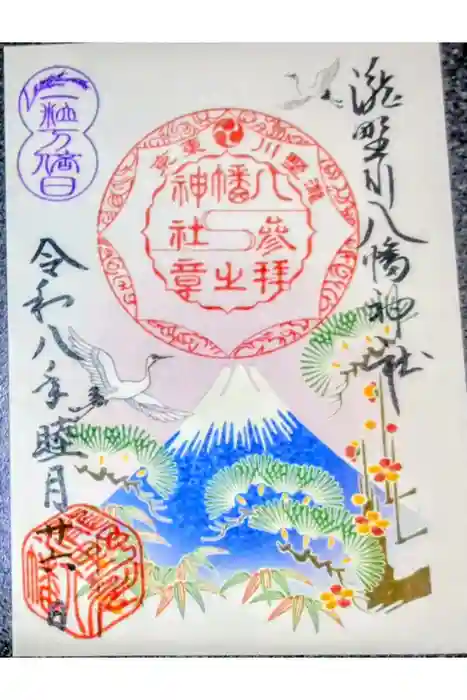 瀧野川八幡神社
東京 瀧野川
八幡神社
参拝之章
一粒万倍日
令和八年睦月廿六日